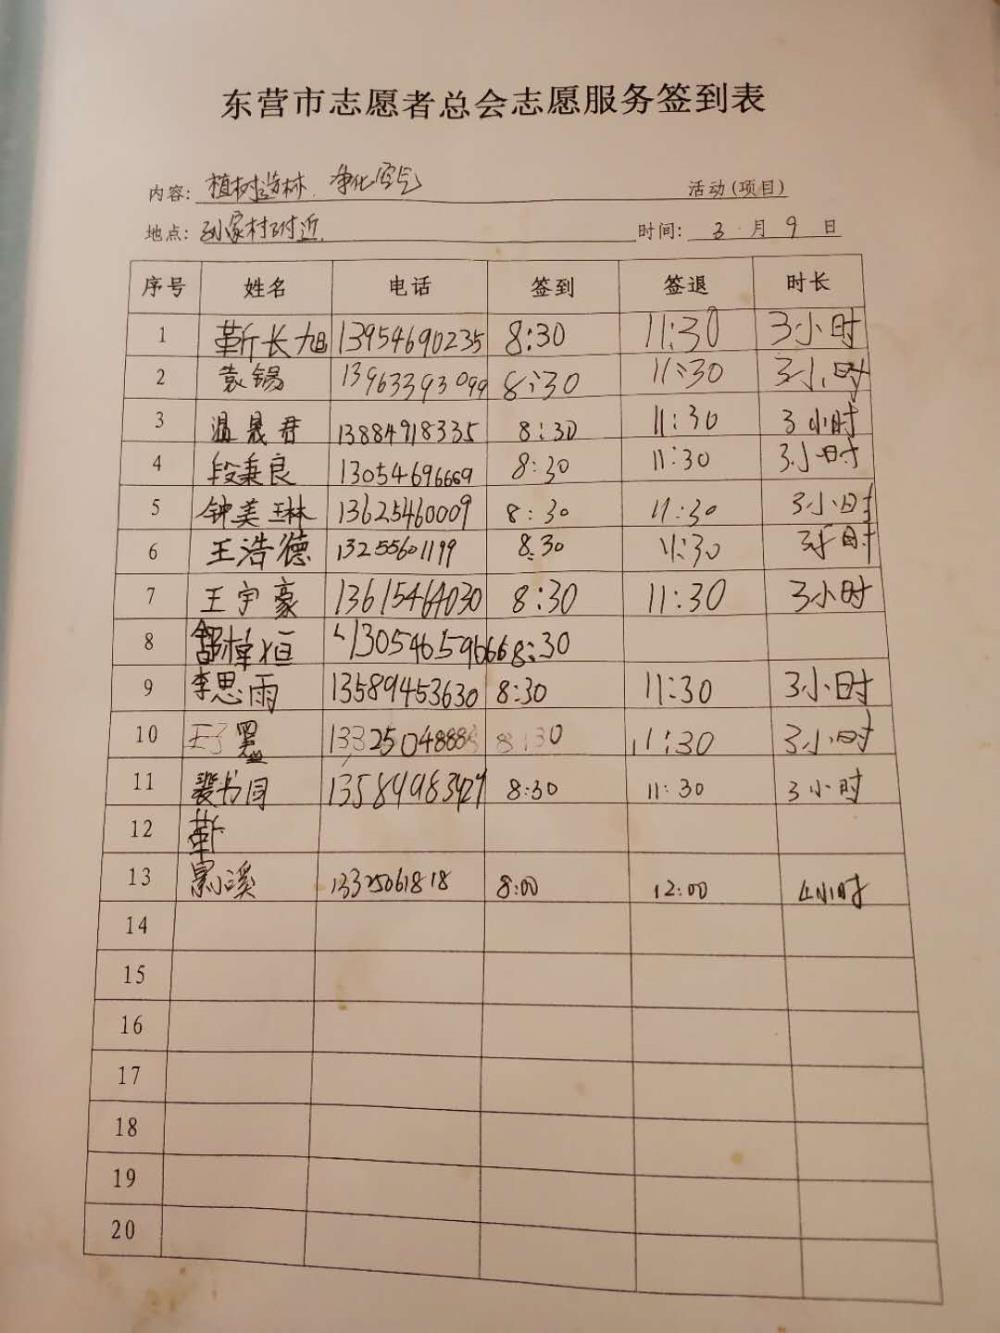 东营市志愿者总会志愿服务签到表
内容: 植树造林 净化空气 活动(项目)
地点: 孙家村附近 时间: 3 月 9 日
序号 姓名 电话 签到 签退 时长
1 靳长旭 13954690235 8:30 11:30 3小时
2 袁锡 13963393099 8:30 11:30 3小时
3 温晟君 13884918335 8:30 11:30 3小时
4 段秉良 13054696669 8:30 11:30 3小时
5 钟美琳 13625460009 8:30 11:30 3小时
6 王浩德 13255601199 8:30 11:30 3小时
7 王宇豪 13615464030 8:30 11:30 3小时
8 13054659666 8:30
9 李思雨 13589453630 8:30 11:30 3小时
10 8:30 11:30 3小时
11 8:30 11:30 3小时
12 靳
13 13325061818 8:00 12:00 4小时
14
15
16
17
18
19
20